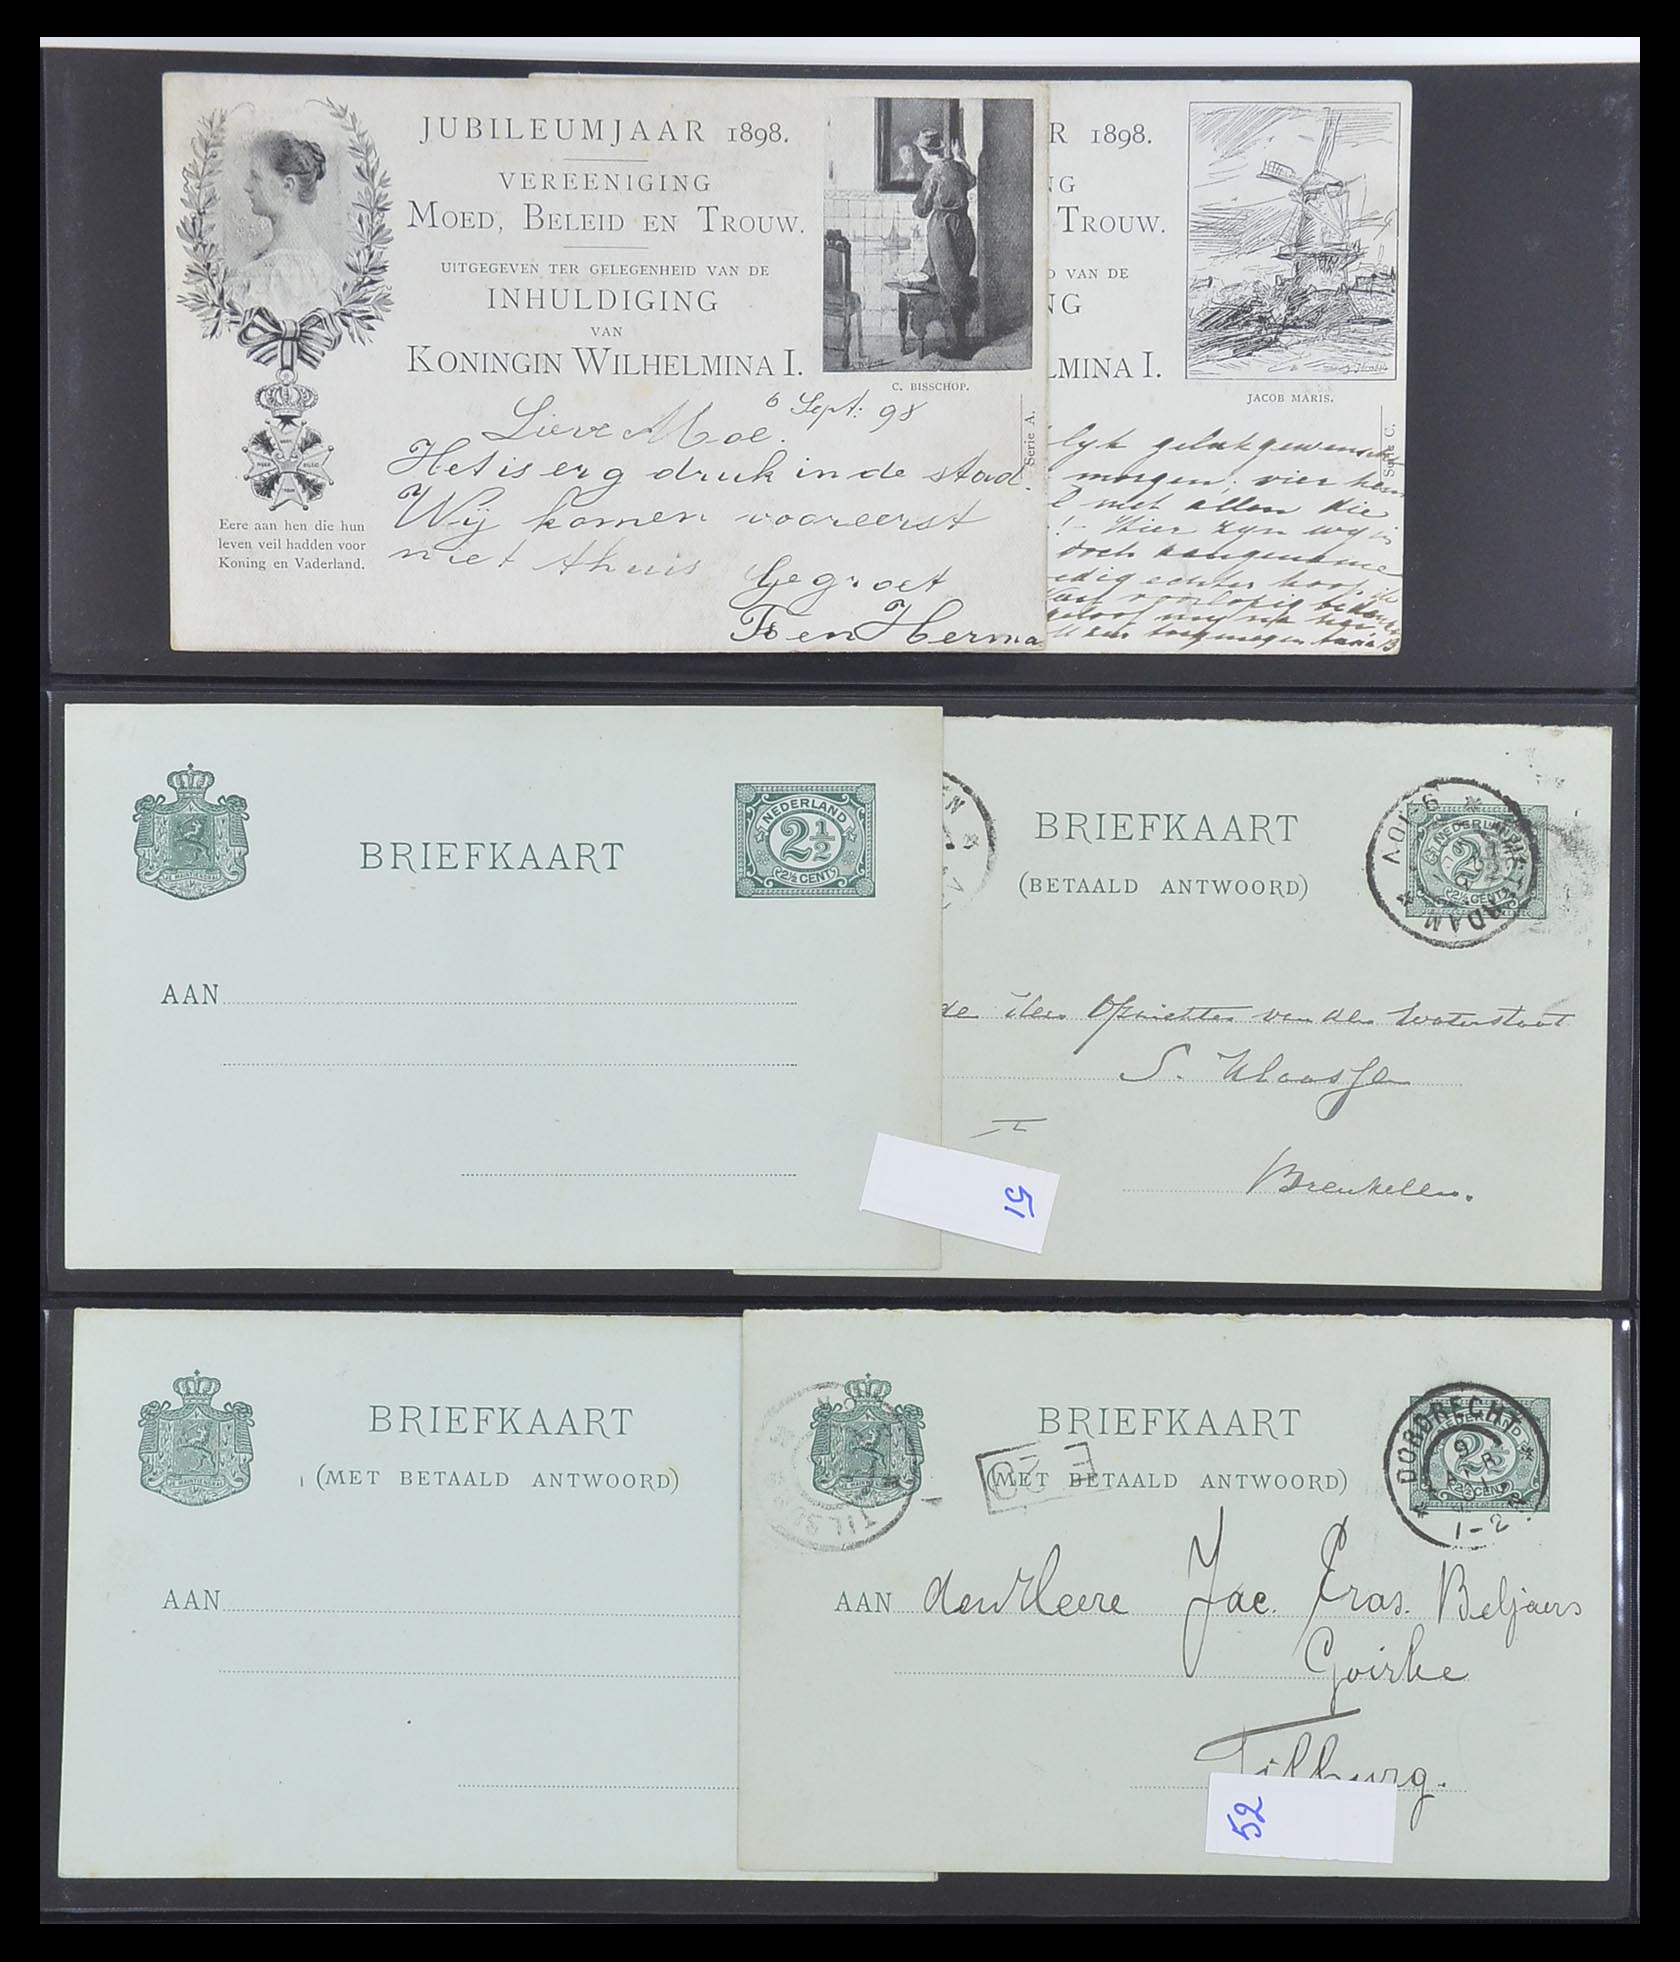 JUBILEUMJAAR 1898.
VEREENIGING
MOED, BELEID EN TROUW.
UITGEGEVEN TER GELEGENHEID VAN DE
INHULDIGING
VAN
KONINGIN WILHELMINA I.
C. BISSCHOP.
Serie A.
6 Sept: 98
Lieve Moe.
Het is erg druk in de stad.
Wij komen vooreerst
niet thuis Gegroet
F en Herma
Eere aan hen die hun
leven veil hadden voor
Koning en Vaderland.
R 1898.
NG
TROUW.
D VAN DE
NG
LMINA I.
JACOB MARIS.
Serie C.
morgen; vier
met allen die
! - Hier zyn wy in
BRIEFKAART
NEDERLAND
2½
2½ CENT
AAN
51
BRIEFKAART
(BETAALD ANTWOORD)
NEDERLAND
2½ CENT
DAM
9-10V
de Heer Opzichter van den Waterstaat
S. Klaasse
Breukelen.
BRIEFKAART
(MET BETAALD ANTWOORD)
AAN
BRIEFKAART
(MET BETAALD ANTWOORD)
DORDRECHT
1-2
AAN den Heere Jac. Eras. Beljaers
Goirke
Tilburg.
52